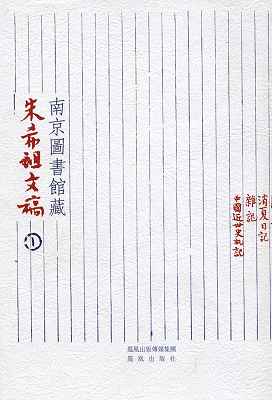 南京圖書館藏
朱希祖文稿
①
消夏日記
雜記
中國近世史札記
鳳凰出版傳媒集團
鳳凰出版社